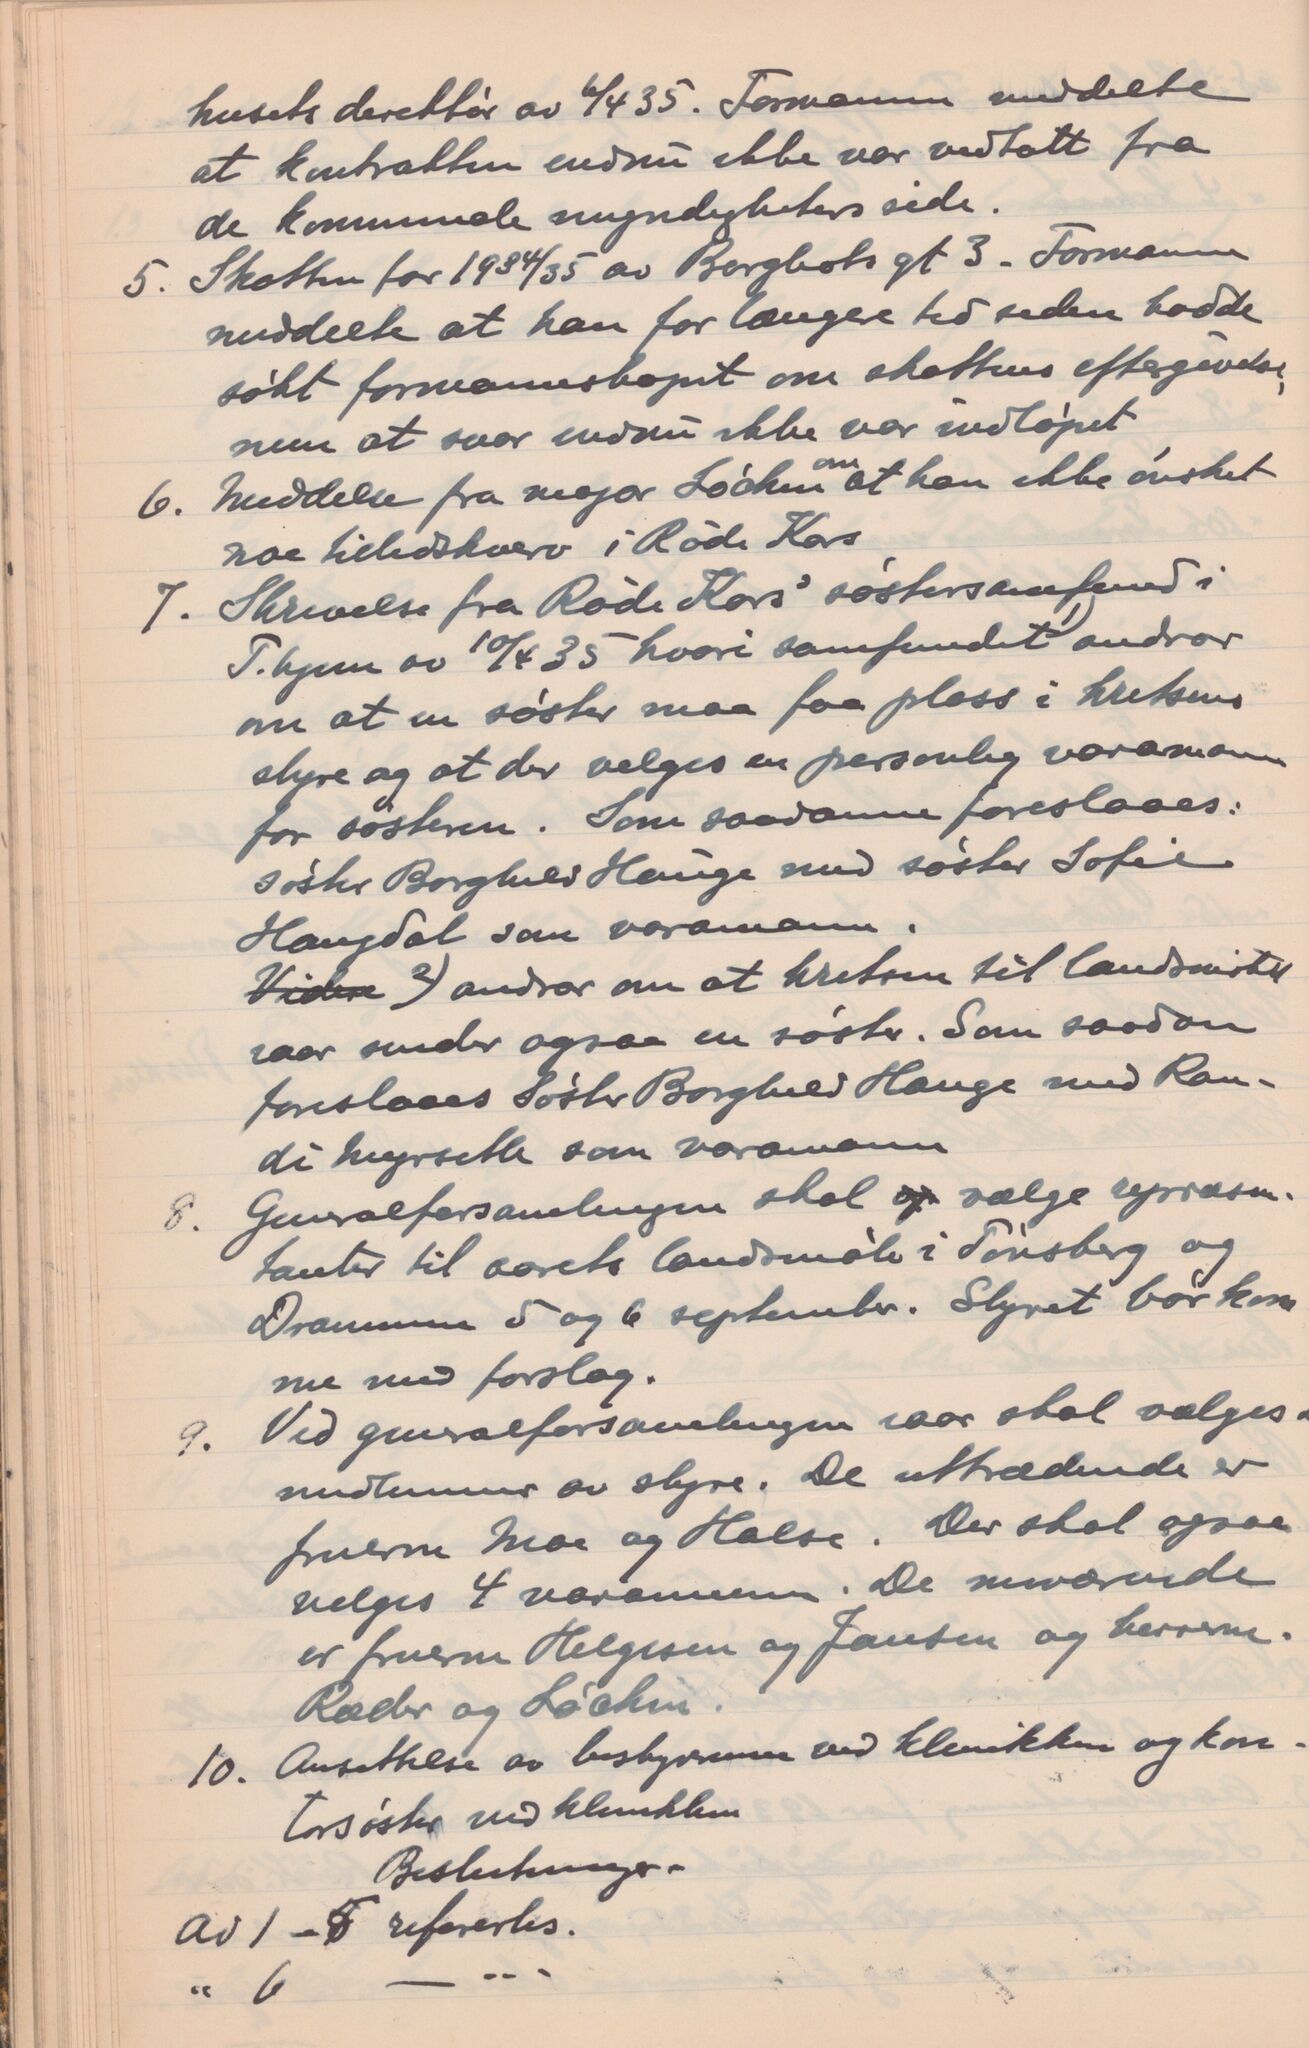 husets derektör av 6/4 35. Formannen meddelte
at kontrakten endnu ikke var vedtatt fra
de kommunale myndigheters side.
5. Skatten for 1934/35 av Borghots gt 3 - Formannen
meddelte at han for længere tid siden hadde
sökt formannskapet om skattens eftergivelse,
men at svar endnu ikke var indlöpet
6. Meddelse fra major Löchen om at han ikke önsket
noe tillidshverv i Röde Kors
7. Skrivelse fra Röde Kors' söstersamfund i
T.hjem av 10/4 35 hvori samfundet 1) andrar
om at en söster maa faa plass i kretsens
styre og at der velges en personlig varamann
for sösteren. Som saadanne foreslaaes:
söster Borghild Hauge med söster Sofie
Haugdal som varamann.
Videre 2) andrar om at kretsen til landsmötet
iaar sender ogsaa en söster. Som saadan
foreslaaes Söster Borghild Hauge med Ran-
di Myrsette som varamann
8. Generalforsamlingen skal vælge repræsen-
tanter til aarets landsmöte i Tönsberg og
Drammen 5 og 6 september. Styret bör kom
me med forslag.
9. Ved generalforsamlingen iaar skal vælges
medlemmer av styre. De uttrædende er
fruerne Moe og Halse. Der skal ogsaa
velges 4 varamenn. De nuværende
er fruerne Helgesen og Jansen og herrerne
Ræder og Löchen.
10. Ansettelse av bestyrerinne ved klinikken og kon-
torsöster ved klinikken
Beslutninger.
Ad 1 - 5 referertes.
" 6 — " -